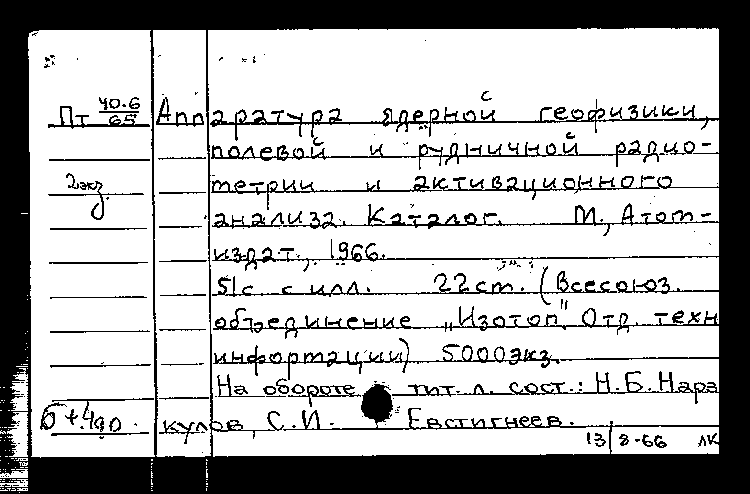 Пт 40.6/65 Аппаратура ядерной геофизики,
полевой и рудничной радио-
2экз. метрии и активационного
анализа. Каталог. М., Атом-
издат., 1966.
51с. с илл. 22см. (Всесоюз.
объединение „Изотоп". Отд. техн
информации) 5000экз.
На обороте тит. л. сост.: Н.Б. Нара
кулов, С.И. Евстигнеев.
13/8-66 ЛК